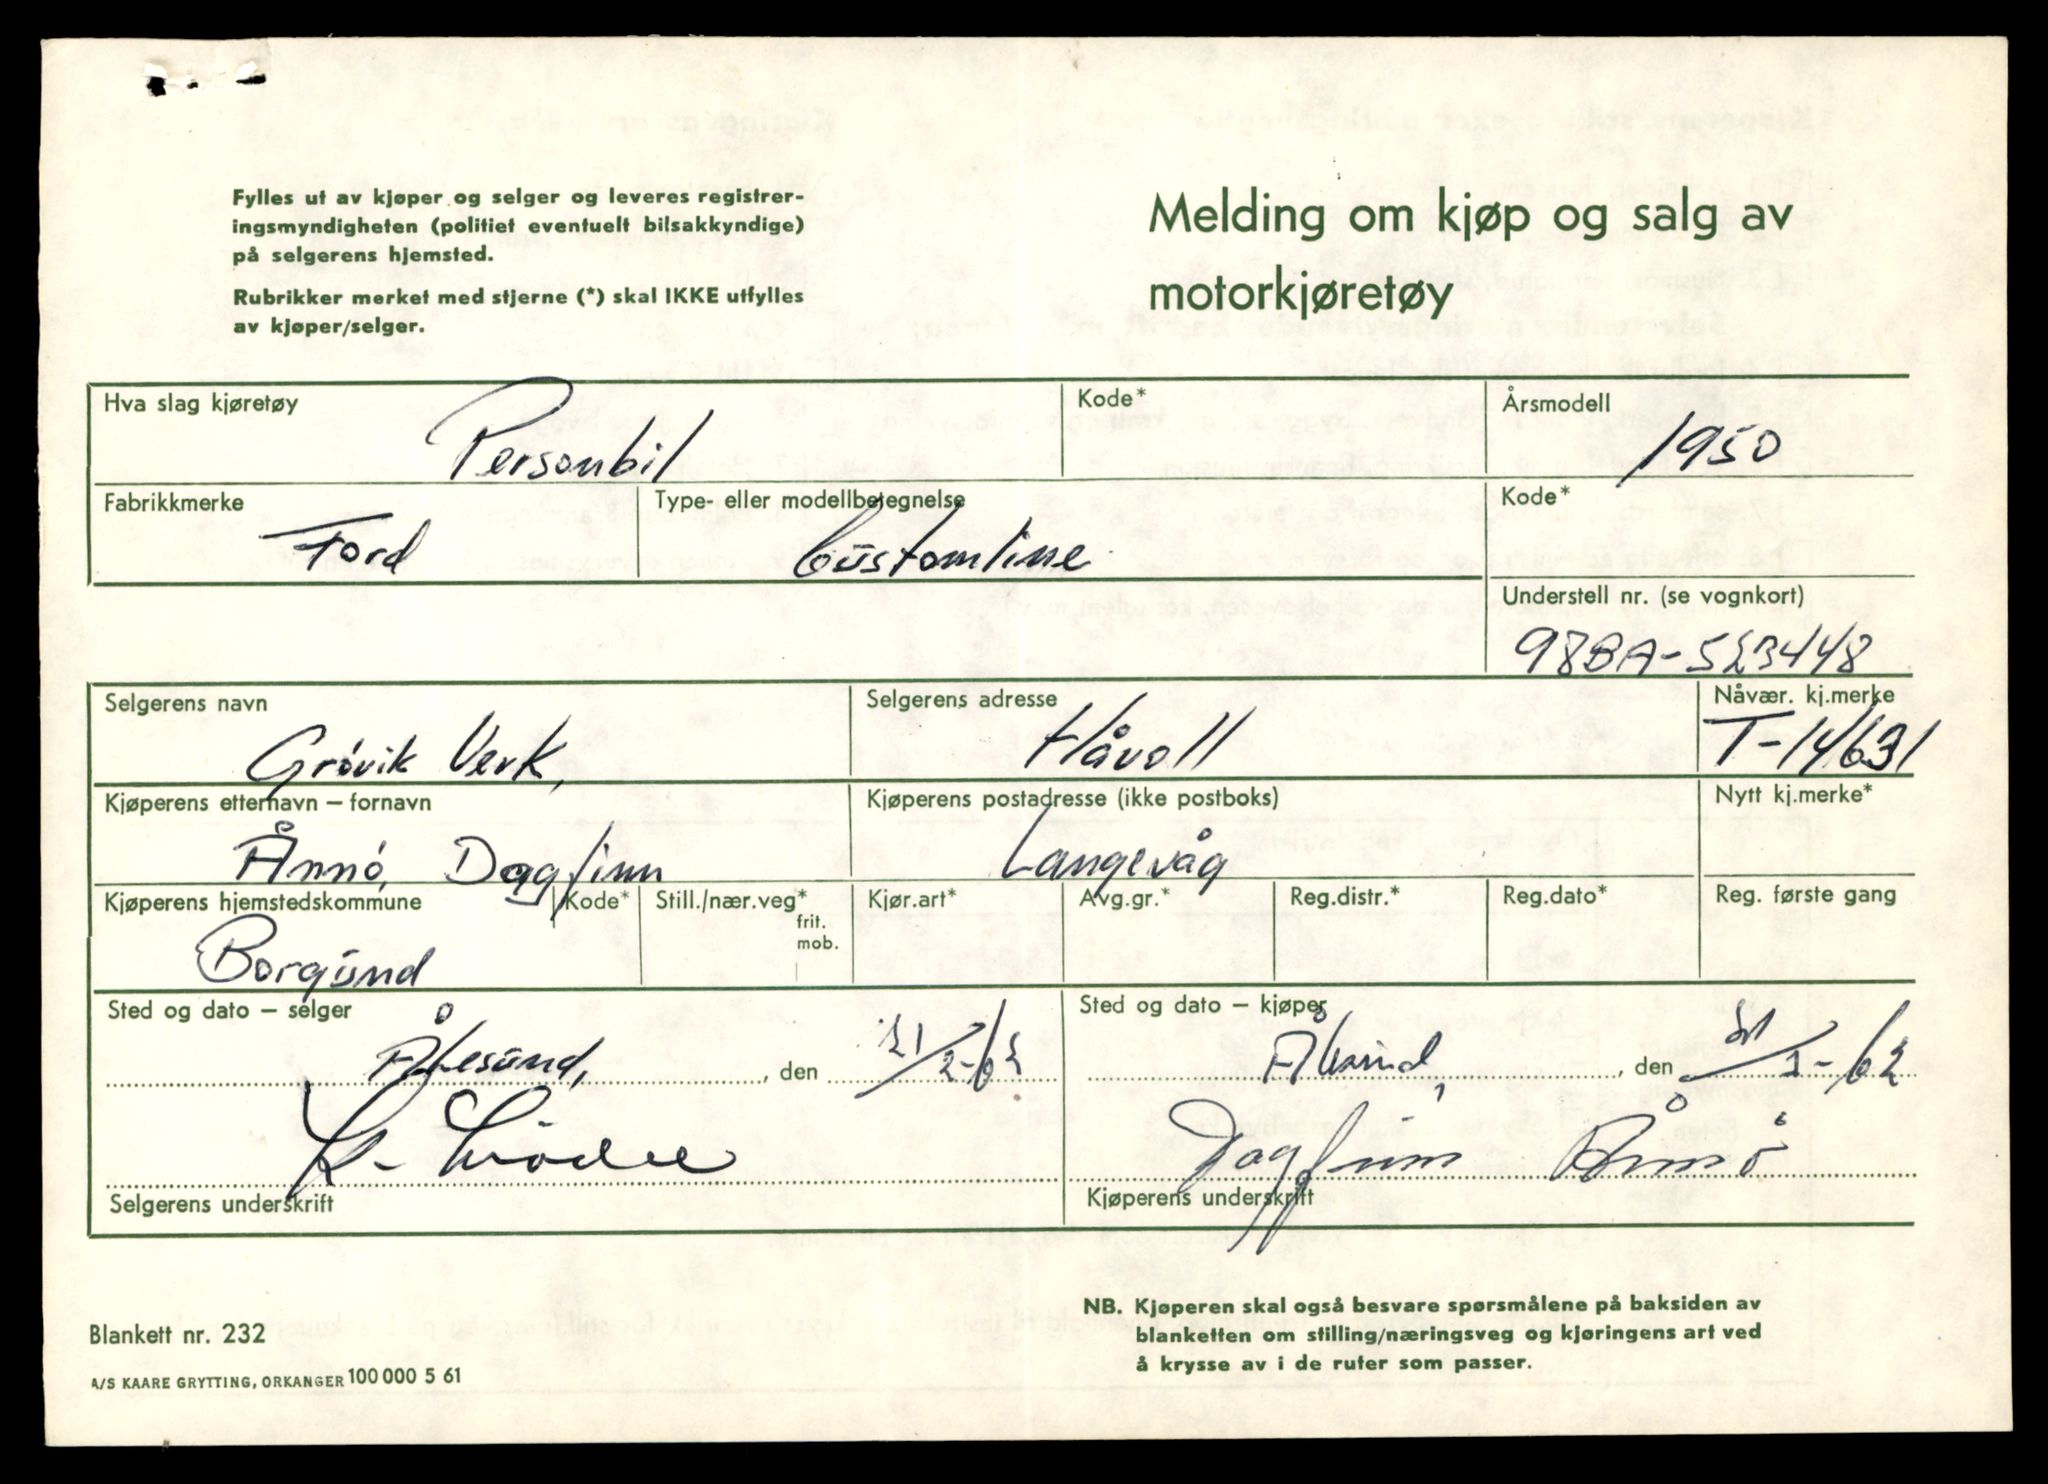 Fylles ut av kjøper og selger og leveres registrer-
ingsmyndigheten (politiet eventuelt bilsakkyndige)
på selgerens hjemsted.
Rubrikker merket med stjerne (*) skal IKKE utfylles
av kjøper/selger.
Melding om kjøp og salg av
motorkjøretøy
Hva slag kjøretøy
Personbil
Kode*
Årsmodell
1950
Fabrikkmerke
Ford
Type- eller modellbetegnelse
Customline
Kode*
Understell nr. (se vognkort)
98BA-523448
Selgerens navn
Grøvik Verk,
Selgerens adresse
Håvoll
Nåvær. kj.merke
T-14631
Kjøperens etternavn – fornavn
Ånnø, Dagfinn
Kjøperens postadresse (ikke postboks)
Langevåg
Nytt kj.merke*
Kjøperens hjemstedskommune
Borgund
Kode*
Still./nær.veg*
frit.
mob.
Kjør.art*
Avg.gr.*
Reg.distr.*
Reg.dato*
Reg. første gang
Sted og dato – selger
Ålesund, , den 21/2-62
Selgerens underskrift
Sted og dato – kjøper
Ålesund, , den 21/2-62
Dagfinn Ånnø
Kjøperens underskrift
Blankett nr. 232
A/S KAARE GRYTTING, ORKANGER 100 000 5 61
NB. Kjøperen skal også besvare spørsmålene på baksiden av
blanketten om stilling/næringsveg og kjøringens art ved
å krysse av i de ruter som passer.